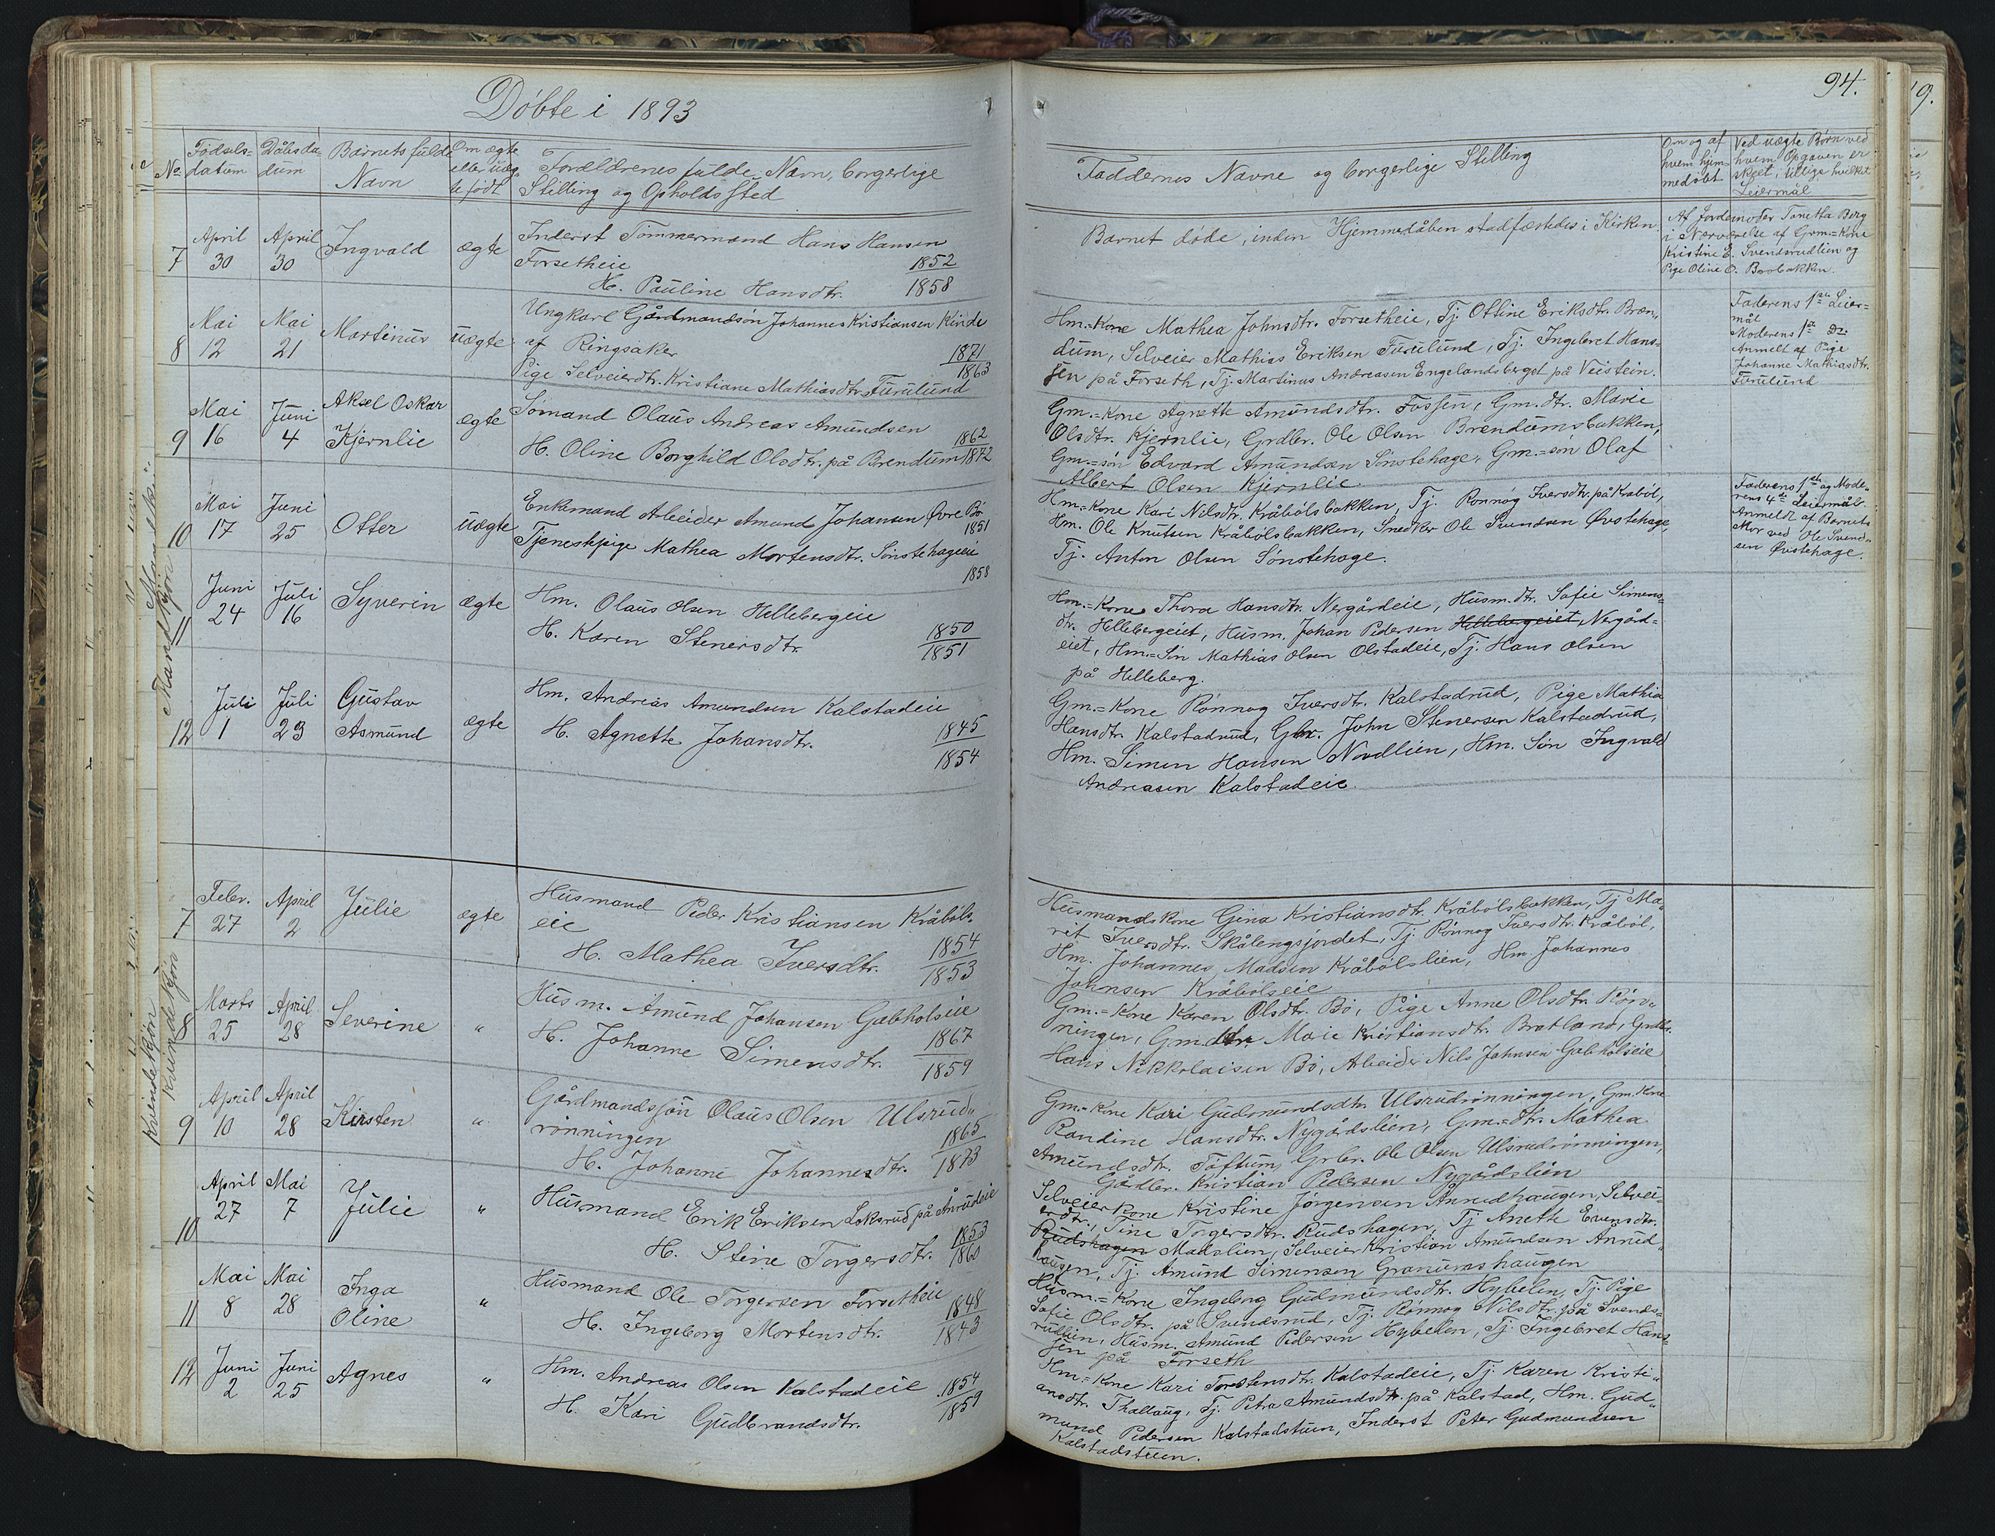 Døbte i 1893
94.
No
Fødsels-
datum
Dåbsda-
tum
Barnets fulde
Navn
Om ægte
eller uæg-
te født
Forældrenes fulde Navn, borgerlige
Stilling og Opholdssted
Mandkjøn
7
April
30
April
30
Ingvald
ægte
Inderst Tømmermand Hans Hansen
Forsetheie
1852
H. Pauline Hansdtr.
1858
8
Mai
12
Mai
21
Martinus
uægte
Ungkarl Gårdmandsøn Johannes Kristiansen Kinde
af Ringsaker
1871
1863
Pige Selveierdtr. Kristiane Mathiasdtr. Furulund
9
Mai
16
Juni
4
Aksel Oskar
Kjernlie
ægte
Sømand Olaus Andreas Amundsen
1862
H. Oline Borghild Olsdtr. på Brendum 1872
10
Mai
17
Juni
25
Otter
uægte
Enkemand Arbeider Amund Johansen Øvre Bø
1851
Tjenestepige Mathea Mortensdtr. Sønstehageeie
1858
11
Juni
24
Juli
16
Syverin
ægte
Hm. Olaus Olsen Hellebergeie
1850
H. Karen Stenersdtr.
1851
12
Juli
1
Juli
23
Gustav
Asmund
ægte
Hm. Andreas Amundsen Kalstadeie
1845
H. Agnette Johansdtr.
1854
Kvindekjøn
7
Febr.
27
April
2
Julie
ægte
Husmand Peder Kristiansen Kråbøls-
eie
1854
H. Mathea Iversdtr.
1853
8
Marts
25
April
28
Severine
"
Husm. Amund Johansen Gabholseie
1867
H. Johanne Simensdtr.
1859
9
April
10
April
28
Kirsten
"
Gårdmandssøn Olaus Olsen Ulsrud-
rønningen
1865
H. Johanne Johannesdtr.
1873
10
April
27
Mai
7
Julie
"
Husmand Erik Eriksen Loksrud på Anrudeie
1853
H. Stine Torgersdtr.
1860
11
Mai
8
Mai
28
Inga
Oline
"
Husmand Ole Torgersen Forsetheie
1848
H. Ingeborg Mortensdtr.
1843
12
Juni
2
Juni
25
Agnes
"
Hm. Andreas Olsen Kalstadeie
1854
H. Kari Gudbrandsdtr.
1859
Faddernes Navne og borgerlige Stilling
Om og af
hvem hjem-
medøbt
Ved uægte Børn ved
hvem Opgaven er
skeet; tillige hvilket
Leiermål
Barnet døde, inden Hjemmedåben stadfæstedes i Kirken
Af Jordemoder Tonetta Berg
i Nærværelse af Grm=Kone
Kristine E. Svendsrudlien og
Pige Oline O. Brobakken.
Hm=Kone Mathea Johnsdtr. Forsetheie, Tj. Ottine Eriksdtr. Bræn-
dum, Selveier Mathias Eriksen Furulund, Tj. Ingebret Hans-
sen på Forseth, Tj. Martinus Andreasen Engelandsberget på Veistein.
Faderens 1ste Leier-
mål
Moderens 1ste do.
Anmelt af Pige
Johanne Mathiasdtr.
Furulund
Gm.=Kone Agnette Amundsdtr. Fossen, Gm.dtr. Marie
Olsdtr. Kjernlie, Grdbr. Ole Olsen Brendumsbakken,
Gm.=søn Edvard Amundsen Sønstehage, Gm.=søn Olaf
Albert Olsen Kjernlie.
Hm=Kone Kari Nilsdtr. Kråbølsbakken, Tj. Rønnøg Iversdtr. på Kråbøl,
Hm. Ole Knutsen Kråbølsbakken, Snedker Ole Svendsen Øvstehage,
Tj. Anton Olsen Sønstehage.
Faderens 1ste og Mode-
rens 4de Leiermål.
Anmeldt af Barnets
Mor ved Ole Svend-
sen Øvstehage.
Hm.=Kone Thora Hansdtr. Nergårdeie, Husm.dtr. Sofie Simens-
dtr. Hellebergeiet, Husm. Johan Pedersen Hellebergeiet, Nergård-
eiet, Hm=Søn Mathias Olsen Olstadeie, Tj. Hans Olsen
på Helleberg.
Gm.=Kone Rønnog Iversdtr. Kalstadrud, Pige Mathia
Hansdtr. Kalstadrud, Gbr. John Stenersen Kalstadrud,
Hm. Simen Hansen Nordlien, Hm. Søn Ingvald
Andreasen Kalstadeie.
Husmandskone Gina Kristiansdtr. Kråbølsbakken, Tj. Ma-
rit Iversdtr. Skålengsjordet, Tj. Rønnog Iversdtr. Kråbøl,
Hm. Johannes Madsen Kråbølslien, Hm. Johannes
Johnsen Kråbølseie
Gm.=Kone Karen Olsdtr. Bø, Pige Anne Olsdtr. Rørv-
ningen, Gm.dtr. Maie Kristiansdtr. Bratland, Grdbr.
Hans Nikkolaisen Bø, Arbeider Nils Johnsen Gabholseie
Gm=Kone Kari Gudmundsdtr. Ulsrudrønningen, Gm.Kone
Randine Hansdtr. Nygårdslien, Gm=dtr. Mathea
Amundsdtr. Toftum, Grbr. Ole Olsen Ulsrudrønningen,
Gårdbr. Kristian Pedersen Nygårdslien
Selveier Kone Kristine Jørgensen Anrudhaugen, Selvei-
erdtr. Tine Torgersdtr. Rudshagen, Tj. Anette Evensdtr.
Rudshagen Madslien, Selveier Kristian Amundsen Anrud-
haugen, Tj. Amund Simensen Granumshaugen
Husm.=Kone Ingeborg Gudmundsdtr. Hybelen, Tj. Pige
Sofie Olsdtr. på Svendsrud, Tj. Rønnog Nilsdtr. på Svends-
rudlien, Husm. Amund Pedersen Hybelen, Tj. Ingebret Hans-
sen på Forseth
Hm=Kone Kari Torstensdtr. Kalstadeie, Tj. Karen Kristi-
ansdtr. Thallaug, Tj. Petra Amundsdtr. på Kalstad, Hm. Gud-
mund Pedersen Kalstadstuen, Inderst Peter Gudmundsen
Kalstadstuen.